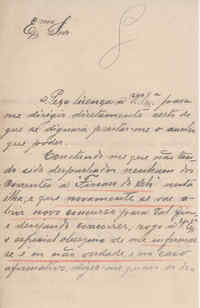 Exmo Snr
Peço licença a V. Exa. para
me dirigir directamente certo de
que se dignará prestar-me o auxilio
que poder.
Constando-me que não tem
sido despachados nenhum dos
concorrentes a "Fiscaes do Sêlo" nesta
ilha, e que novamente se vae a-
brir novo concurso para tal fim
e desejando concorrer, rogo a V. Exa.
o especial obsequio de me informar
se é ou não verdade e em caso
afirmativo, dizer-me quaes os do-